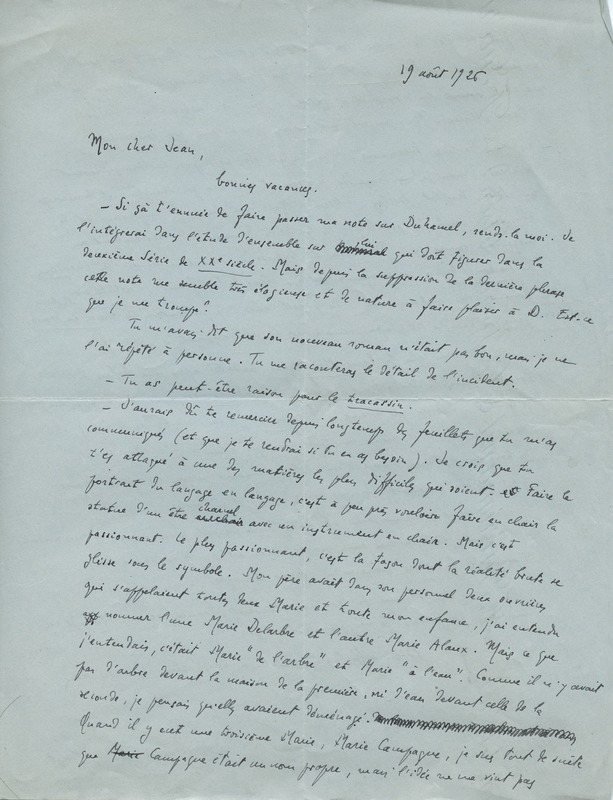 19 août 1926
Mon cher Jean,
bonnes vacances.
– Si çà t'ennuie de faire passer ma note sur Duhamel, rends-la moi. Je
l'intégrerai dans l'étude d'ensemble sur lui qui doit figurer dans la
deuxième série de XXe siècle. Mais depuis la suppression de la dernière phrase
cette note me semble très élogieuse et de nature à faire plaisir à D. Est-ce
que je me trompe?
Tu m'avais dit que son nouveau roman n'était pas bon, mais je ne
l'ai répété à personne. Tu me raconteras le détail de l'incident.
– Tu as peut-être raison pour le tracassin.
– J'aurais dû te remercier depuis longtemps des feuillets que tu m'as
communiqués (et que je te rendrai si tu en as besoin). Je crois que tu
t'es attaqué à une des matières les plus difficiles qui soient. Faire le
portrait du langage en langage, c'est à peu près vouloir faire en chair la
statue d'un être charnel avec un instrument en chair. Mais c'est
passionnant. Le plus passionnant, c'est la façon dont la réalité brute se
glisse sous le symbole. Mon père avait dans son personnel deux ouvrières
qui s'appelaient toutes deux Marie et toute mon enfance, j'ai entendu
nommer l'une Marie Delarbre et l'autre Marie Alaux. Mais ce que
j'entendais, c'était Marie "de l'arbre" et Marie "à l'eau". Comme il n'y avait
pas d'arbre devant la maison de la première, ni d'eau devant celle de la
seconde, je pensais qu'elles avaient déménagé.
Quand il y eut une troisième Marie, Marie Campagne, je sus tout de suite
que Campagne était un nom propre, mais l'idée ne me vint pas